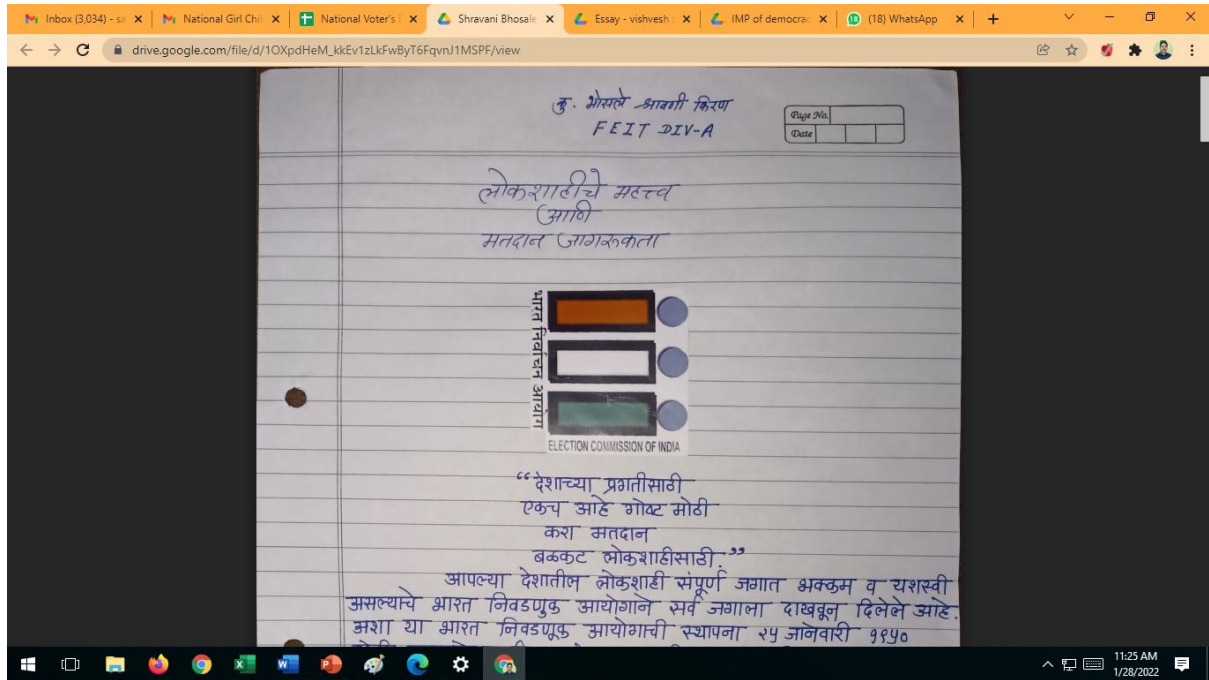 Inbox (3,034) - sa
National Girl Chi
National Voter's
Shravani Bhosale
Essay - vishvesh
IMP of democrac
(18) WhatsApp
drive.google.com/file/d/1OXpdHeM_kkEv1zLkFwByT6FqvnJ1MSPF/view
कु. भोसले श्रावणी किरण
FEIT DIV-A
Page No.
Date
लोकशाहीचे महत्त्व
आणि
मतदान जागरूकता
भारत निर्वाचन आयोग
ELECTION COMMISSION OF INDIA
“देशाच्या प्रगतीसाठी
एकच आहे गोष्ट मोठी
करा मतदान
बळकट लोकशाहीसाठी.”
आपल्या देशातील लोकशाही संपूर्ण जगात भक्कम व यशस्वी
असल्याचे भारत निवडणुक आयोगाने सर्व जगाला दाखवून दिलेले आहे.
अशा या भारत निवडणूक आयोगाची स्थापना २५ जानेवारी १९५०
11:25 AM
1/28/2022